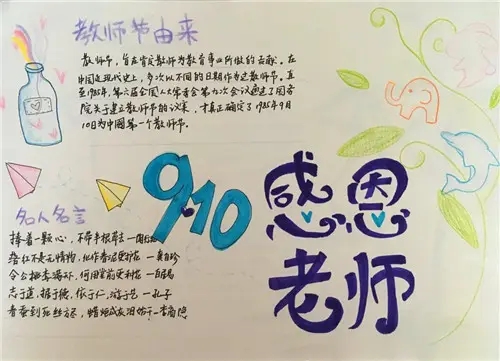 教师节由来
教师节，旨在肯定教师为教育事业所做的贡献。在
中国近现代史上，多次以不同的日期作为过教师节。直
至1985年，第六届全国人大常委会第九次会议通过了国务
院关于建立教师节的议案，才真正确定了1985年9月
10日为中国第一个教师节。
9.10
感恩
老师
名人名言
捧着一颗心，不带半根草去一陶行知
落红不是无情物，化作春泥更护花一龚自珍
令公桃李满何用堂前更种花一白居易
志于道，据于德，依于仁，游于艺一孔子
春蚕到死丝方尽，蜡炬成灰泪始干一李商隐